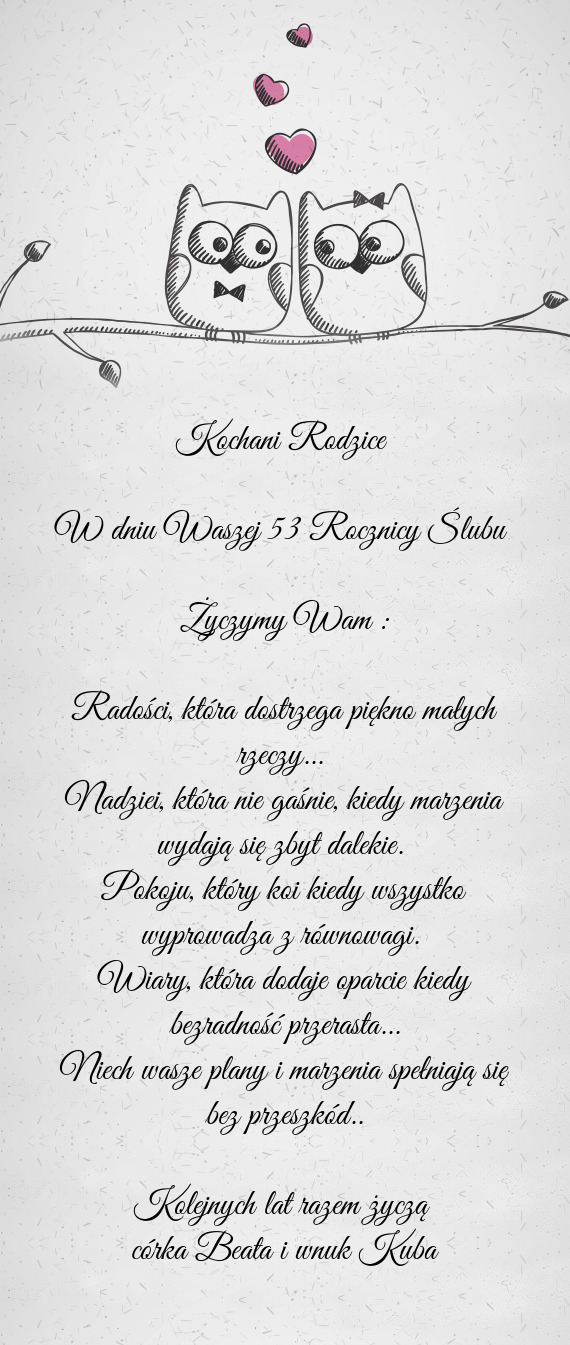 Kochani Rodzice
W dniu Waszej 53 Rocznicy Ślubu
Życzymy Wam :
Radości, która dostrzega piękno małych
rzeczy...
Nadziei, która nie gaśnie, kiedy marzenia
wydają się zbyt dalekie.
Pokoju, który koi kiedy wszystko
wyprowadza z równowagi.
Wiary, która dodaje oparcie kiedy
bezradność przerasta...
Niech wasze plany i marzenia spełniają się
bez przeszkód..
Kolejnych lat razem życzą
córka Beata i wnuk Kuba